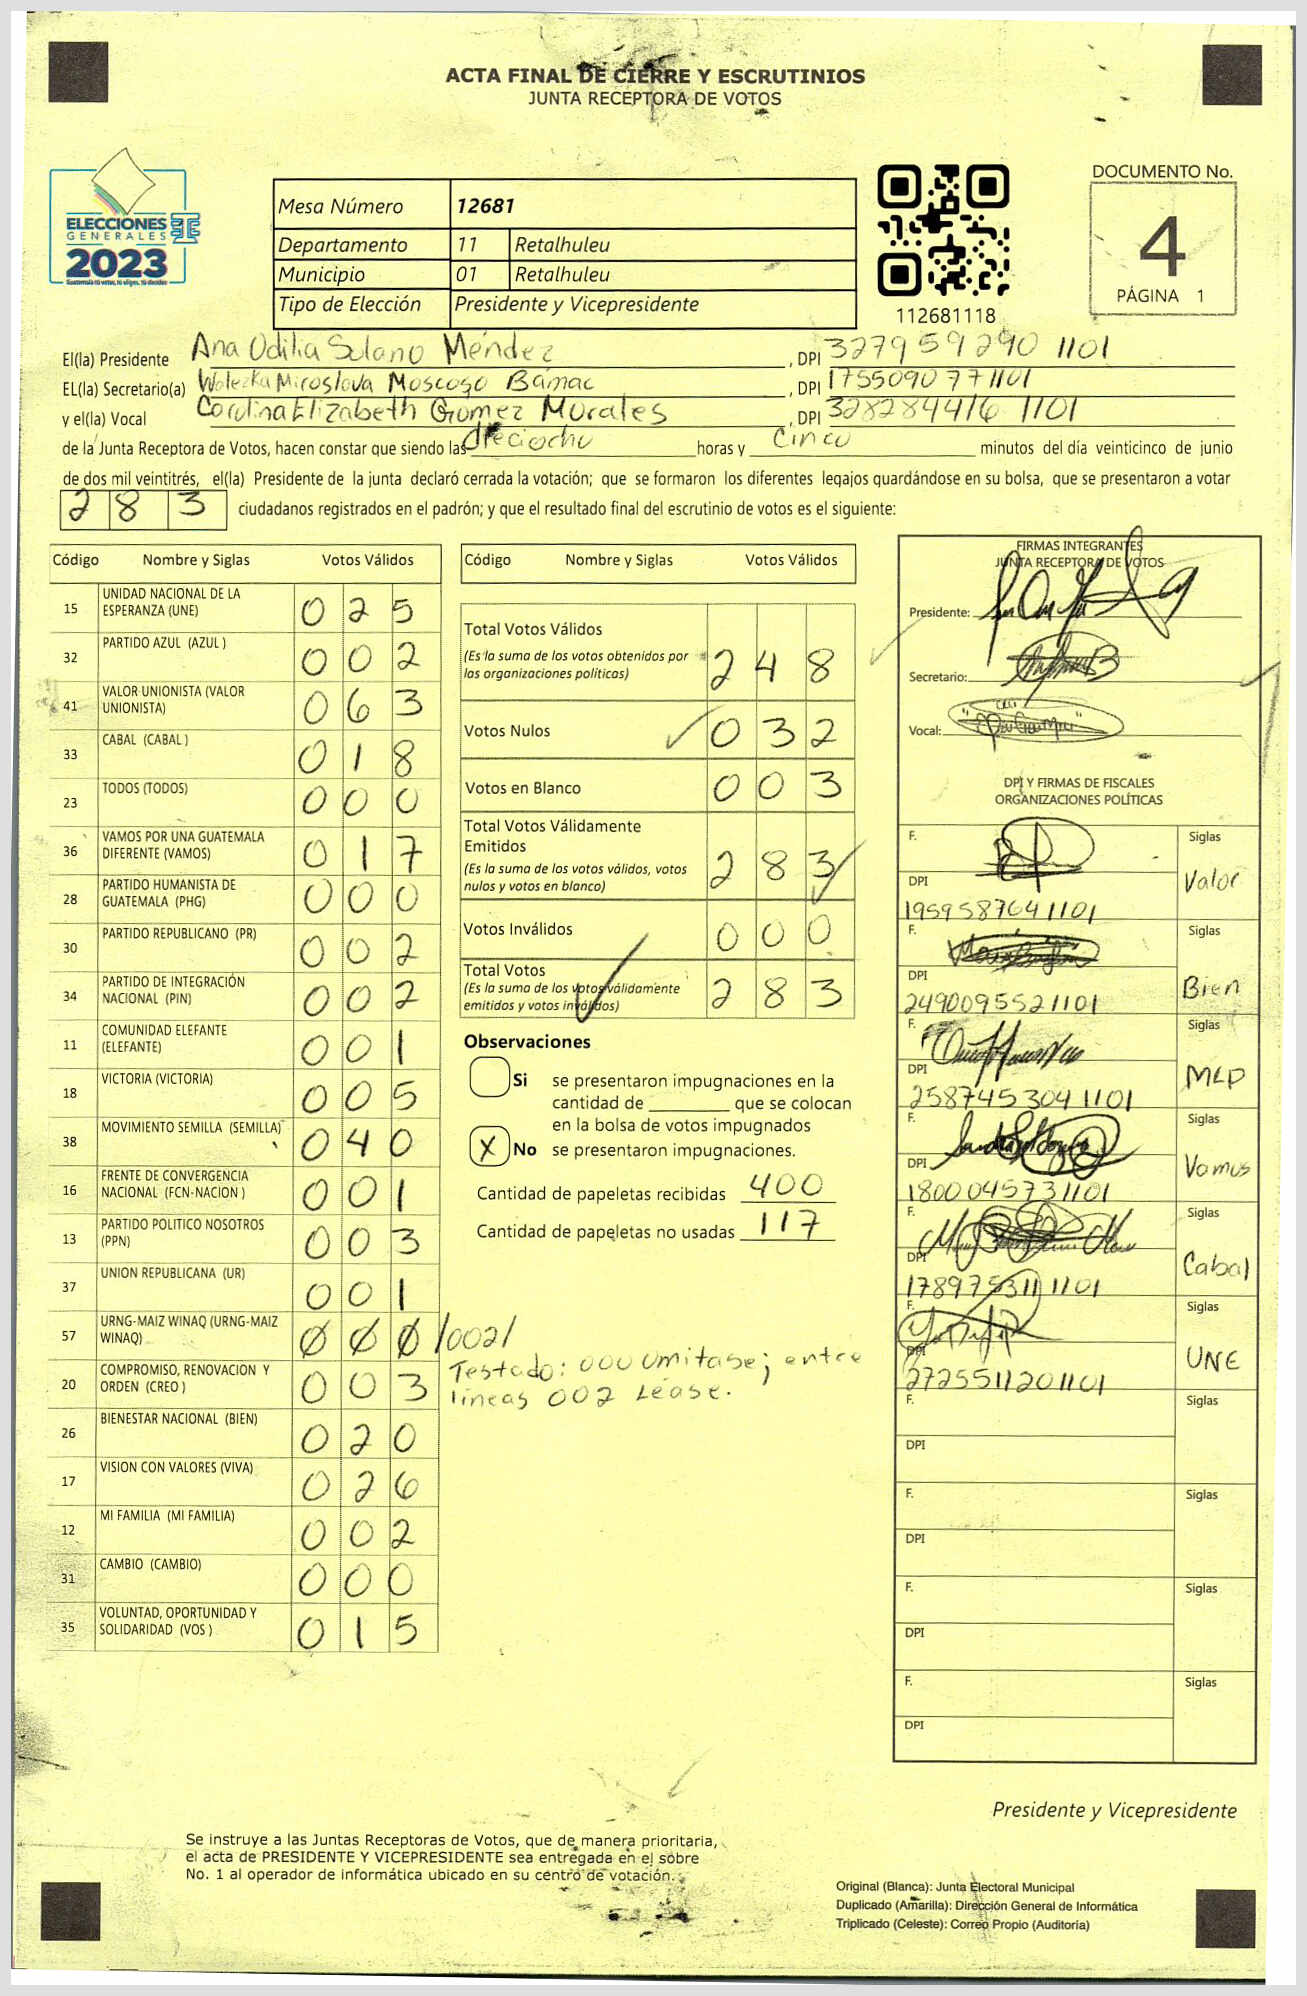 ACTA FINAL DE CIERRE Y ESCRUTINIOS
JUNTA RECEPTORA DE VOTOS
ELECCIONES
GENERALES
2023
Guatemala tú votar, tú eliges, tú decides
Mesa Número 12681
Departamento 11 Retalhuleu
Municipio 01 Retalhuleu
Tipo de Elección Presidente y Vicepresidente
112681118
DOCUMENTO No.
4
PÁGINA 1
El(la) Presidente Ana Odilia Solano Méndez, DPI 327959290 1101
EL(la) Secretario(a) Moscoso Bámac, DPI 1755090771101
y el(la) Vocal Elizabeth Gómez Morales, DPI 328284416 1101
de la Junta Receptora de Votos, hacen constar que siendo las dieciocho horas y Cinco minutos del día veinticinco de junio
de dos mil veintitrés, el(la) Presidente de la junta declaró cerrada la votación; que se formaron los diferentes legajos guardándose en su bolsa, que se presentaron a votar
283 ciudadanos registrados en el padrón; y que el resultado final del escrutinio de votos es el siguiente:
Código Nombre y Siglas Votos Válidos
15 UNIDAD NACIONAL DE LA ESPERANZA (UNE) 025
32 PARTIDO AZUL (AZUL ) 002
41 VALOR UNIONISTA (VALOR UNIONISTA) 063
33 CABAL (CABAL ) 018
23 TODOS (TODOS) 000
36 VAMOS POR UNA GUATEMALA DIFERENTE (VAMOS) 017
28 PARTIDO HUMANISTA DE GUATEMALA (PHG) 000
30 PARTIDO REPUBLICANO (PR) 002
34 PARTIDO DE INTEGRACIÓN NACIONAL (PIN) 002
11 COMUNIDAD ELEFANTE (ELEFANTE) 001
18 VICTORIA (VICTORIA) 005
38 MOVIMIENTO SEMILLA (SEMILLA) 040
16 FRENTE DE CONVERGENCIA NACIONAL (FCN-NACION ) 001
13 PARTIDO POLITICO NOSOTROS (PPN) 003
37 UNION REPUBLICANA (UR) 001
57 URNG-MAIZ WINAQ (URNG-MAIZ WINAQ) 000 /002/
20 COMPROMISO, RENOVACION Y ORDEN (CREO ) 003
26 BIENESTAR NACIONAL (BIEN) 020
17 VISION CON VALORES (VIVA) 026
12 MI FAMILIA (MI FAMILIA) 002
31 CAMBIO (CAMBIO) 000
35 VOLUNTAD, OPORTUNIDAD Y SOLIDARIDAD (VOS ) 015
Código Nombre y Siglas Votos Válidos
Total Votos Válidos 248
(Es la suma de los votos obtenidos por
las organizaciones políticas)
Votos Nulos 032
Votos en Blanco 003
Total Votos Válidamente
Emitidos 283
(Es la suma de los votos válidos, votos
nulos y votos en blanco)
Votos Inválidos 000
Total Votos 283
(Es la suma de los votos válidamente
emitidos y votos inválidos)
Observaciones
Si se presentaron impugnaciones en la
cantidad de ________ que se colocan
en la bolsa de votos impugnados
X No se presentaron impugnaciones.
Cantidad de papeletas recibidas 400
Cantidad de papeletas no usadas 117
Testado: 000 Omitase; entre
líneas 002 Léase.
FIRMAS INTEGRANTES
JUNTA RECEPTORA DE VOTOS
Presidente:
Secretario:
Vocal:
DPI Y FIRMAS DE FISCALES
ORGANIZACIONES POLÍTICAS
F. Siglas
DPI Valor
1959587641101
F. Siglas
DPI Bien
2490095521101
F. Siglas
DPI MLP
2587453041101
F. Siglas
DPI Vamos
1800045731101
F. Siglas
DPI Cabal
1789753111101
F. Siglas
DPI UNE
2725511201101
F. Siglas
DPI
F. Siglas
DPI
F. Siglas
DPI
F. Siglas
DPI
Presidente y Vicepresidente
Se instruye a las Juntas Receptoras de Votos, que de manera prioritaria,
el acta de PRESIDENTE Y VICEPRESIDENTE sea entregada en el sobre
No. 1 al operador de informática ubicado en su centro de votación.
Original (Blanca): Junta Electoral Municipal
Duplicado (Amarilla): Dirección General de Informática
Triplicado (Celeste): Correo Propio (Auditoría)